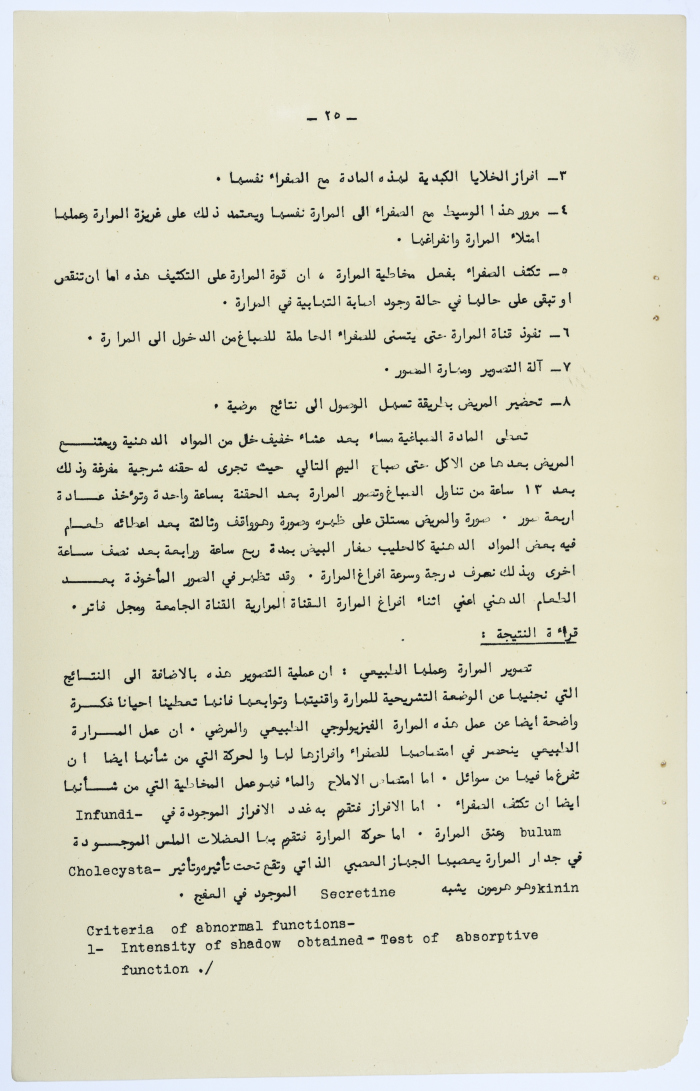 — ٢٥ —
٣— افراز الخلايا الكبدية لهذه المادة مع الصفراء نفسها .
٤— مرور هذا الوسيط مع الصفراء الى المرارة نفسها ويعتمد ذلك على غريزة المرارة وعملها
امتلاء المرارة وانفراغها .
٥— تكثف الصفراء بفعل مخاطية المرارة ، ان قوة المرارة على التكثيف هذه اما ان تنقص
او تبقى على حالها في حالة وجود اصابة التهابية في المرارة .
٦— نفوذ قناة المرارة حتى يتسنى للصفراء الحاملة للصباغ من الدخول الى المرارة .
٧— آلة التصوير ومهارة المصور .
٨— تحضير المريض بطريقة تسهل الوصول الى نتائج مرضية .
تعطى المادة الصباغية مساء بعد عشاء خفيف خال من المواد الدهنية ويمتنع
المريض بعدها عن الاكل حتى صباح اليوم التالي حيث تجرى له حقنه شرجية مفرغة وذلك
بعد ١٣ ساعة من تناول الصباغ وتصور المرارة بعد الحقنة بساعة واحدة وتوءخذ عادة
اربعة صور . صورة والمريض مستلق على ظهره وصورة وهو واقف وثالثة بعد اعطائه طعام
فيه بعض المواد الدهنية كالحليب صفار البيض بمدة ربع ساعة ورابعة بعد نصف ساعة
اخرى وبذلك نعرف درجة وسرعة افراغ المرارة . وقد تظهر في الصور المأخوذة بعد
الطعام الدهني اعني اثناء افراغ المرارة القناة المرارية القناة الجامعة ومجل فاتر .
قراءة النتيجة :
تصوير المرارة وعملها الطبيعي : ان عملية التصوير هذه بالاضافة الى النتائج
التي نجنيها عن الوضعة التشريحية للمرارة واقنيتها وتوابعها فانها تعطينا احيانا فكرة
واضحة ايضا عن عمل هذه المرارة الفيزيولوجي الطبيعي والمرضي . ان عمل المرارة
الطبيعي ينحصر في امتصاصها للصفراء وافرازها لها والحركة التي من شأنها ايضا ان
تفرغ ما فيها من سوائل . اما امتصاص الاملاح والماء فهو عمل المخاطية التي من شأنها
ايضا ان تكثف الصفراء . اما الافراز فتقوم به غدد الافراز الموجودة في Infundi-
bulum وعنق المرارة . اما حركة المرارة فتقوم بها العضلات الملس الموجودة
في جدار المرارة يعصبها الجهاز العصبي الذاتي وتقع تحت تأثيره وتأثير Cholecysta-
kinin وهو هرمون يشبه Secretine الموجود في العفج .
Criteria of abnormal functions-
1- Intensity of shadow obtained - Test of absorptive
function ./